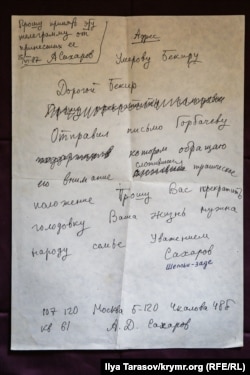 Прошу принять эту
телеграмму от
принесших ее
А Сахаров
Адрес
Умерову Бекиру
Дорогой Бекир
Отправил письмо Горбачеву
котором обращаю
его внимание сложившееся трагическое
положение Прошу Вас прекратить
голодовку Ваша жизнь нужна
народу семье Уважением
Сахаров
Шемьи-заде
107 120 Москва Б-120 Чкалова 48б
кв 61 А. Д. Сахаров
Ilya Tarasov/krymr.org (RFE/RL)